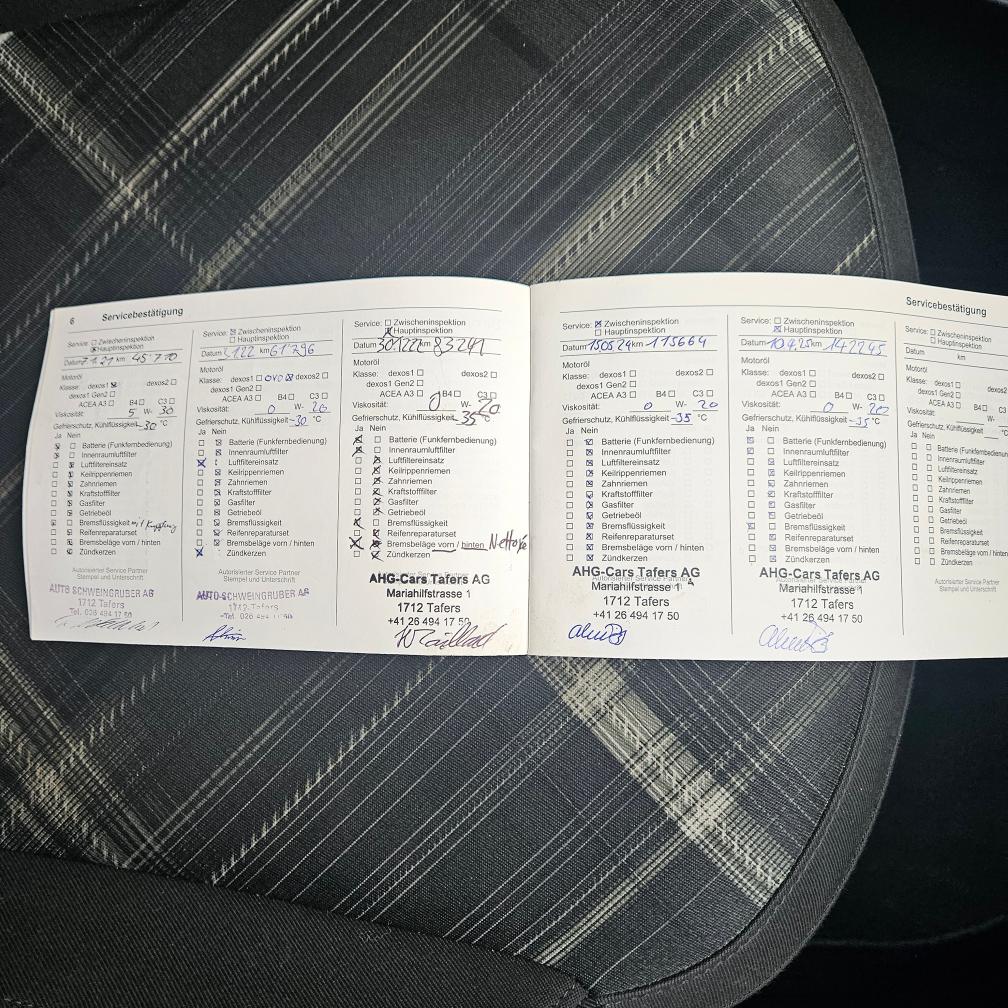 6 Servicebestätigung
Service: Zwischeninspektion
Hauptinspektion
Datum 21 km 45 770
Motoröl
Klasse: dexos1 dexos2
dexos1 Gen2
ACEA A3 B4 C3
Viskosität: 5 W- 30
Gefrierschutz, Kühlflüssigkeit -30 °C
Ja Nein
Batterie (Funkfernbedienung)
Innenraumluftfilter
Luftfiltereinsatz
Keilrippenriemen
Zahnriemen
Kraftstofffilter
Gasfilter
Getriebeöl
Bremsflüssigkeit mit Kupplung
Reifenreparaturset
Bremsbeläge vorn / hinten
Zündkerzen
Autorisierter Service Partner
Stempel und Unterschrift
AUTO SCHWEINGRUBER AG
1712 Tafers
Tel. 026 494 17 50
Service: Zwischeninspektion
Hauptinspektion
Datum km 61 296
Motoröl
Klasse: dexos1 OVO dexos2
dexos1 Gen2
ACEA A3 B4 C3
Viskosität: 0 W- 20
Gefrierschutz, Kühlflüssigkeit -30 °C
Ja Nein
Batterie (Funkfernbedienung)
Innenraumluftfilter
Luftfiltereinsatz
Keilrippenriemen
Zahnriemen
Kraftstofffilter
Gasfilter
Getriebeöl
Bremsflüssigkeit
Reifenreparaturset
Bremsbeläge vorn / hinten
Zündkerzen
Autorisierter Service Partner
Stempel und Unterschrift
AUTO SCHWEINGRUBER AG
1712 Tafers
Tel. 026 494 17 50
Service: Zwischeninspektion
Hauptinspektion
Datum 30.1222 km 83241
Motoröl
Klasse: dexos1 dexos2
dexos1 Gen2
ACEA A3 B4 C3
Viskosität: 0 W- 20
Gefrierschutz, Kühlflüssigkeit -35 °C
Ja Nein
Batterie (Funkfernbedienung)
Innenraumluftfilter
Luftfiltereinsatz
Keilrippenriemen
Zahnriemen
Kraftstofffilter
Gasfilter
Getriebeöl
Bremsflüssigkeit
Reifenreparaturset
Bremsbeläge vorn / hinten
Zündkerzen
AHG-Cars Tafers AG
Mariahilfstrasse 1
1712 Tafers
+41 26 494 17 50
Servicebestätigung
Service: Zwischeninspektion
Hauptinspektion
Datum 150524 km 115664
Motoröl
Klasse: dexos1 dexos2
dexos1 Gen2
ACEA A3 B4 C3
Viskosität: 0 W- 20
Gefrierschutz, Kühlflüssigkeit -35 °C
Ja Nein
Batterie (Funkfernbedienung)
Innenraumluftfilter
Luftfiltereinsatz
Keilrippenriemen
Zahnriemen
Kraftstofffilter
Gasfilter
Getriebeöl
Bremsflüssigkeit
Reifenreparaturset
Bremsbeläge vorn / hinten
Zündkerzen
AHG-Cars Tafers AG
Autorisierter Service Partner
Mariahilfstrasse 1
1712 Tafers
+41 26 494 17 50
Service: Zwischeninspektion
Hauptinspektion
Datum 104.25 km 142245
Motoröl
Klasse: dexos1 dexos2
dexos1 Gen2
ACEA A3 B4 C3
Viskosität: 0 W- 20
Gefrierschutz, Kühlflüssigkeit -35 °C
Ja Nein
Batterie (Funkfernbedienung)
Innenraumluftfilter
Luftfiltereinsatz
Keilrippenriemen
Zahnriemen
Kraftstofffilter
Gasfilter
Getriebeöl
Bremsflüssigkeit
Reifenreparaturset
Bremsbeläge vorn / hinten
Zündkerzen
AHG-Cars Tafers AG
Mariahilfstrasse 1
1712 Tafers
+41 26 494 17 50
Service: Zwischeninspektion
Hauptinspektion
Datum km
Motoröl
Klasse: dexos1
dexos1 Gen2
ACEA A3
Viskosität: W-
Gefrierschutz, Kühlflüssigkeit
Ja Nein
Batterie (Funkfernbedienun
Innenraumluftfilter
Luftfiltereinsatz
Keilrippenriemen
Zahnriemen
Kraftstofffilter
Gasfilter
Getriebeöl
Bremsflüssigkeit
Reifenreparaturset
Bremsbeläge vorn / hinten
Zündkerzen
Autorisierter Service Partner
Stempel und Unterschrift